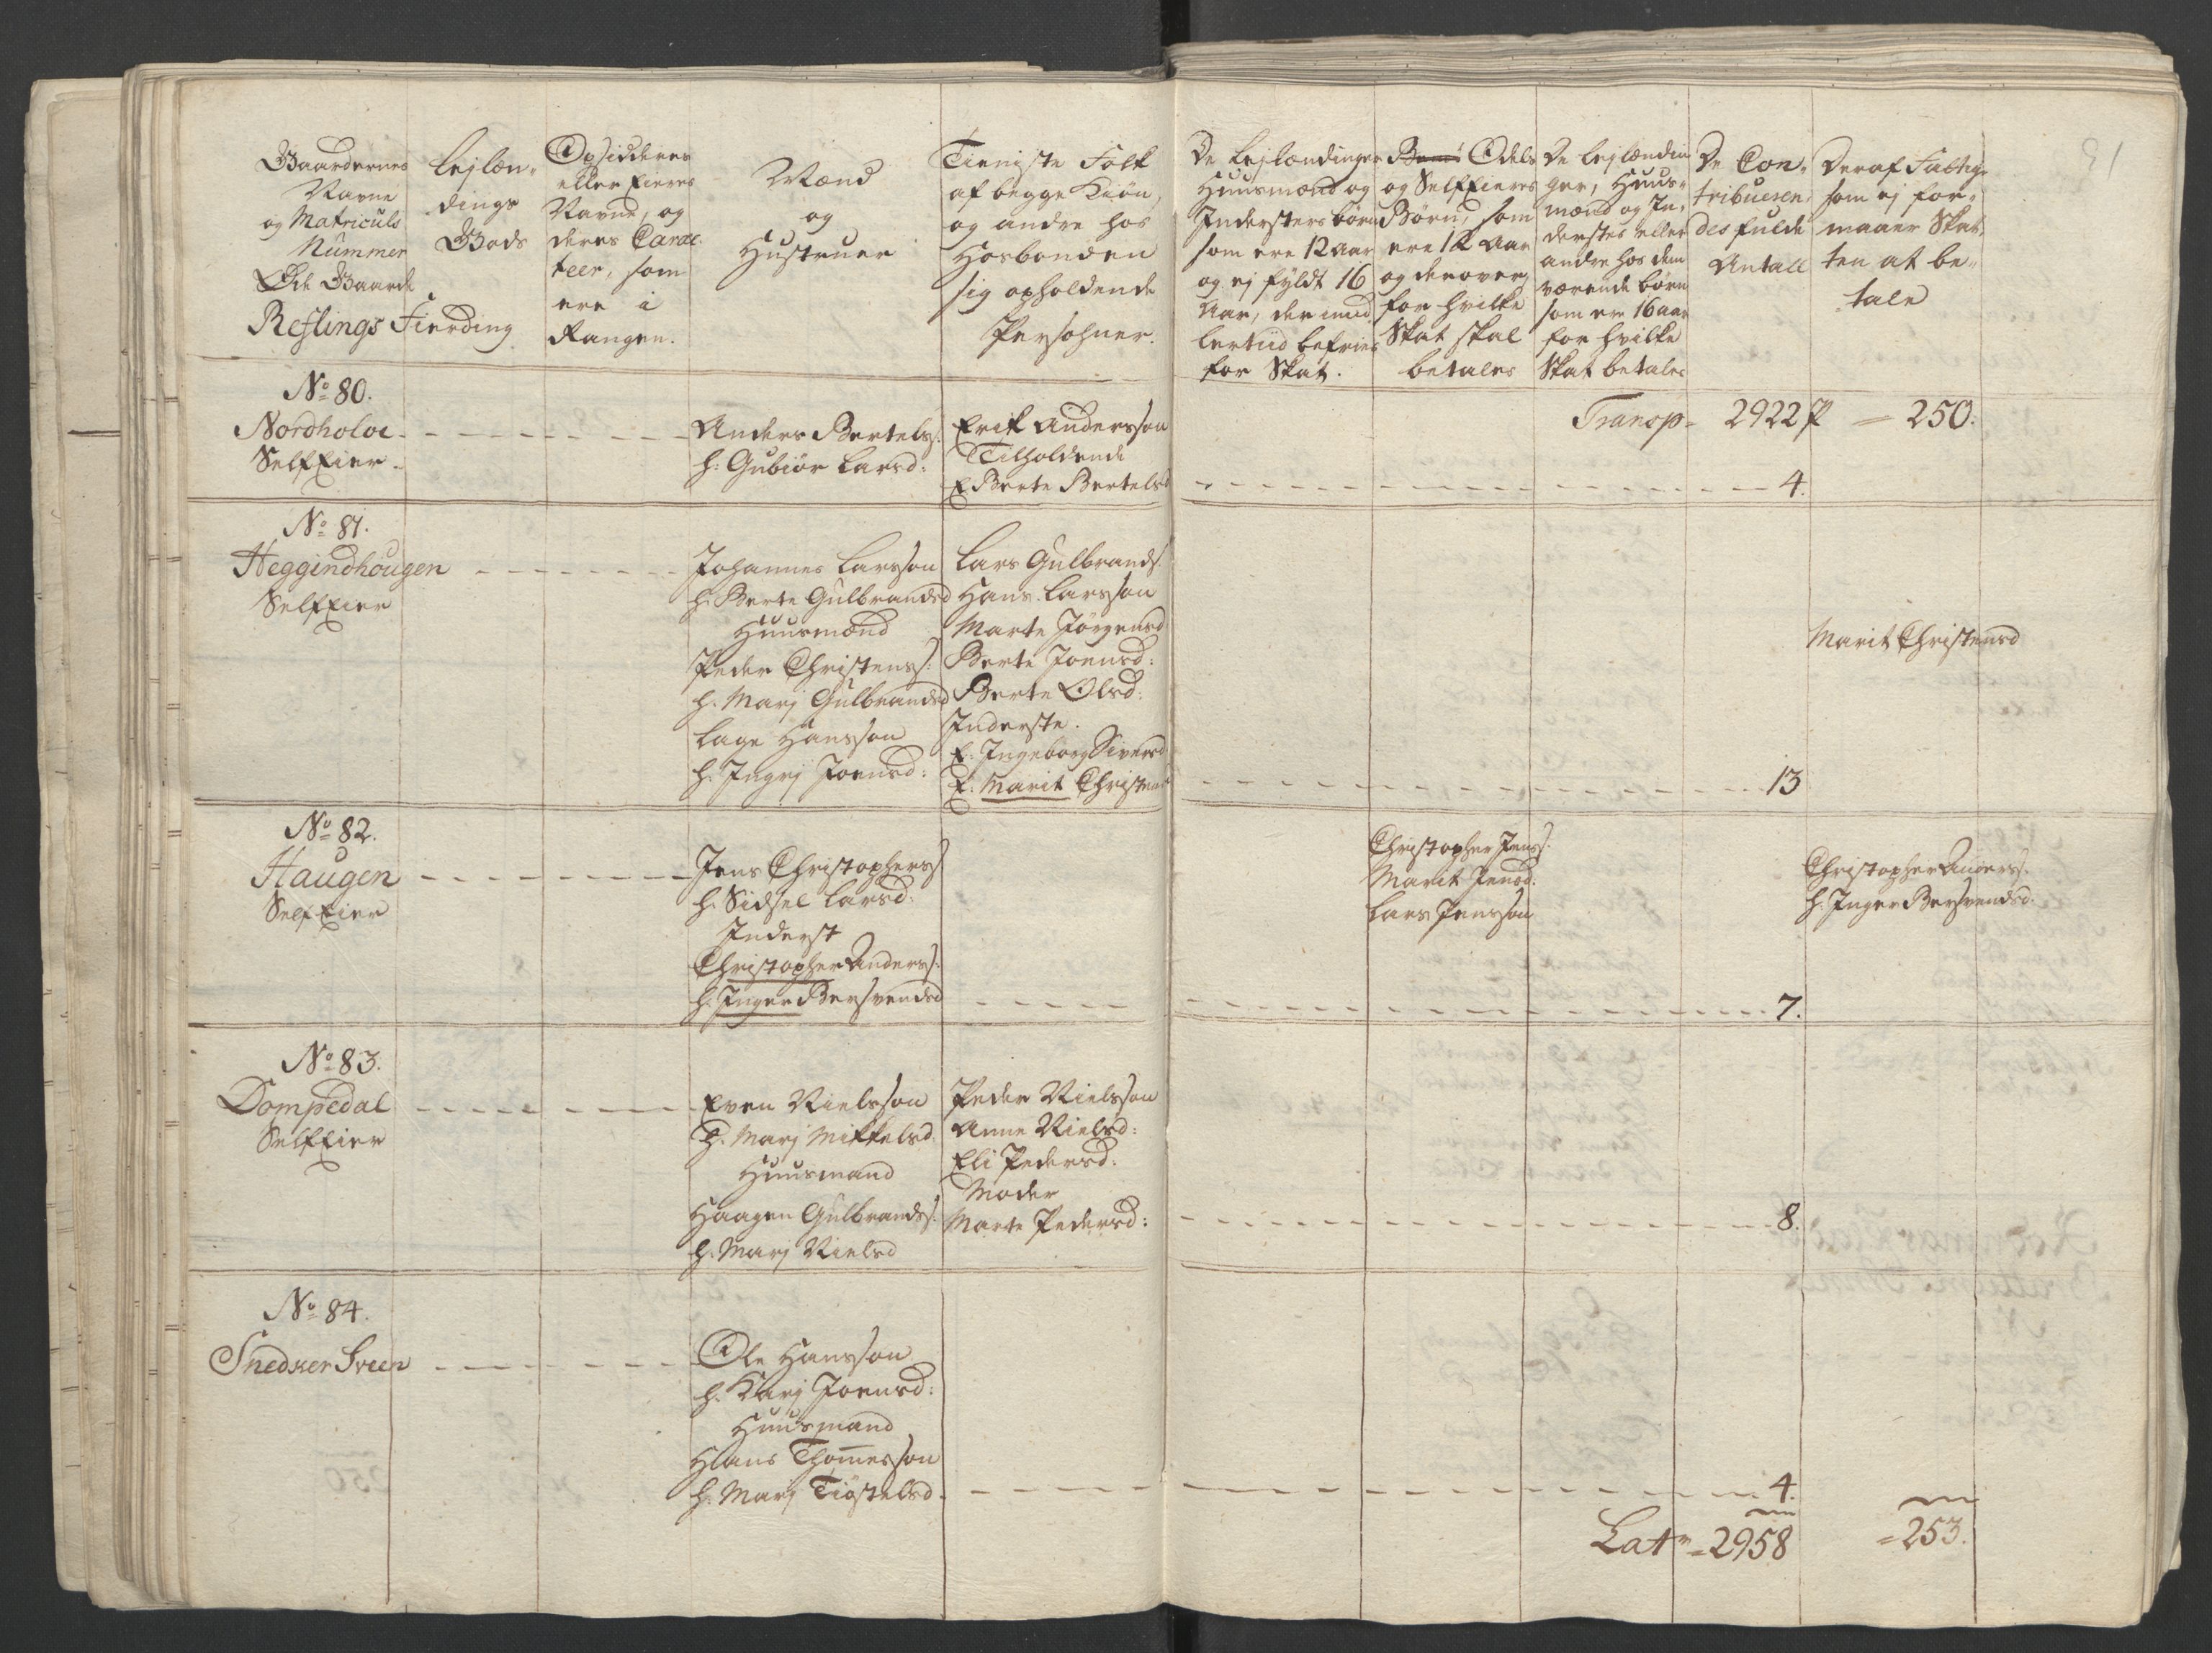 Gaardernes
Navne
og Matriculs
Nummer
Øde Gaarde
Reslings Fierding
Lejlæn-
dings
Gods
Opsidderes
eller Eieres
Navne, og
deres Carac-
teer, som
ere i
Rangen.
Mænd
og
Hustruer
Tieniste Folk
af begge Kiøn,
og andre hos
Hosbonden
sig opholdende
Persohner.
De Lejlændinger
Huusmænd og
Indersters børn
som ere 12 aar
og ej fyldt 16
Aar, der imid
lertiid befries
for Skat.
Odels
og SelfEieres
Børn, som
ere 12 Aar
og derover,
for hvilke
Skat skal
betales
De lejlændin
ger, Huus-
mænd og In-
derstes eller
andre hos dem
værende børn
som ere 16 aar
for hvilke
Skat betales
De Con-
tribueren,
des fulde
Antall
Deraf Fattige
som ej for-
maaer Skat-
ten at be-
tale
No 80.
Nordholve
SelfEier
Anders Bertels:
h: Gubiør Larsd:
Erik Andersson
Tilholdende
E Berte Bertelsd
Transp 2922 = 250:
4.
No 81.
Heggindhougen
SelfEier
Johannes Larsson
h. Berte Gulbrandsd
Huusmænd
Peder Christens:
h. Marj Gulbrandsd
Lage Hansson
h. Ingrj Joensd:
Lars Gulbrands
Hans Larsson
Marte Jørgensd
Berte Joensd:
Berte Olsd:
Inderste.
E. Ingeborg Siversd
E. Marit Christens
13
Marit Christensd
No 82.
Haugen
SelfEier
Jens Christophers
h. Sidsel Larsd:
Inderst
Christopher Anders:
h. Inger Bersvendsd
Christopher Jens:
Marit Jensd:
Lars Jensson
7.
Christopher Anders:
h. Inger Bersvendsd.
No 83.
Dompedal
SelfEier
Even Nielsson
h. Marj Mikkelsd
Huusmand
Haagen Gulbrands:
h. Marj Nielsd
Peder Nielsson
Anne Nielsd:
Eli Pedersd:
Moder
Marte Pedersd:
8.
No 84.
Snedker Sveen
Ole Hansson
h. Karj Joensd:
Huusmand
Hans Thomesson
h. Marj Tiøstelsd.
4.
Latr = 2958
= 253.